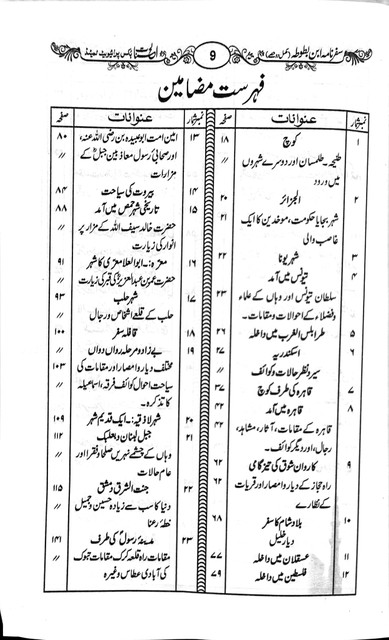 سفر نامہ ابن بطوطہ (مکمل دو حصے)
9
بکس پرائیویٹ لمیٹڈ
فہرست مضامین
نمبر شمار عنوانات صفحہ
۱ کوچ ۱۸
طنجہ۔ طلمسان اور دوسرے شہروں //
میں ورود
۲ الجزائر ۲۰
شہر بجایا حکومت، موحدین کا ایک ۲۱
غاصب والی
۳ شہر بونا ۲۲
۴ تیونس میں آمد //
سلطان تیونس اور وہاں کے علماء ۲۳
وفضلاء کے احوالات و مقامات۔
۵ طرابلس الغرب میں داخلہ ۲۶
۶ اسکندریہ ۲۷
سیر ونظر حالات وکوائف //
۷ قاہرہ کی طرف کوچ ۳۷
۸ قاہرہ میں آمد ۴۲
قاہرہ کے مقامات، آثار، مشاہد، ۴۲
رجال، اور دیگر کوائف۔
۹ کاروان شوق کی تیز گامی ۶۲
راہ حجاز کے دیار وامصار اور قریات ۶۲
کے نظارے
۱۰ بلاد شام کا سفر ۶۸
دیار خلیل
۱۱ عسقلان میں داخلہ ۷۷
۱۲ فلسطین میں داخلہ ۷۹
نمبر شمار عنوانات صفحہ
۱۳ امین امت ابوعبیدہ بن رضی اللہ عنہ، ۸۰
اور صحابی رسول معاذ بن جبل کے //
مزارات
۱۴ بیروت کی سیاحت ۸۴
۱۵ تاریخی شہر حمص میں آمد ۸۸
حضرت خالد سیف اللہ کے مزار پر //
انوار کی زیارت
۱۶ معرہ:۔ ابوالعلا معری کا شہر ۹۱
حضرت عمر بن عبدالعزیز کی قبر کی زیارت //
۱۷ شہر حلب ۹۳
حلب کے قلعے اشخاص ورجال //
۱۸ قافلہ سفر ۱۰۰
۱۹ بے زاد و مرحلہ رواں دواں //
مختلف دیار وامصار اور مقامات کی ۱۰۳
سیاحت احوال کوائف فرقہ، اسماعیلہ //
کا تذکرہ۔
۲۰ شہر لاذقیہ:۔ ایک قدیم شہر ۱۰۹
۲۱ جبل لبنان و بعلبک ۱۱۲
وہاں کے چشمے نہریں صلحا وفقرا اور //
عام حالات
۲۲ جنت الشرق دمشق ۱۱۵
دنیا کا سب سے زیادہ حسین وجمیل //
خطہ رعنا
۲۳ مدینہ رسول کی طرف ۱۴۱
مقامات راہ قلعہ کرک مقامات تبوک //
کی آبادی عطاس وغیرہ